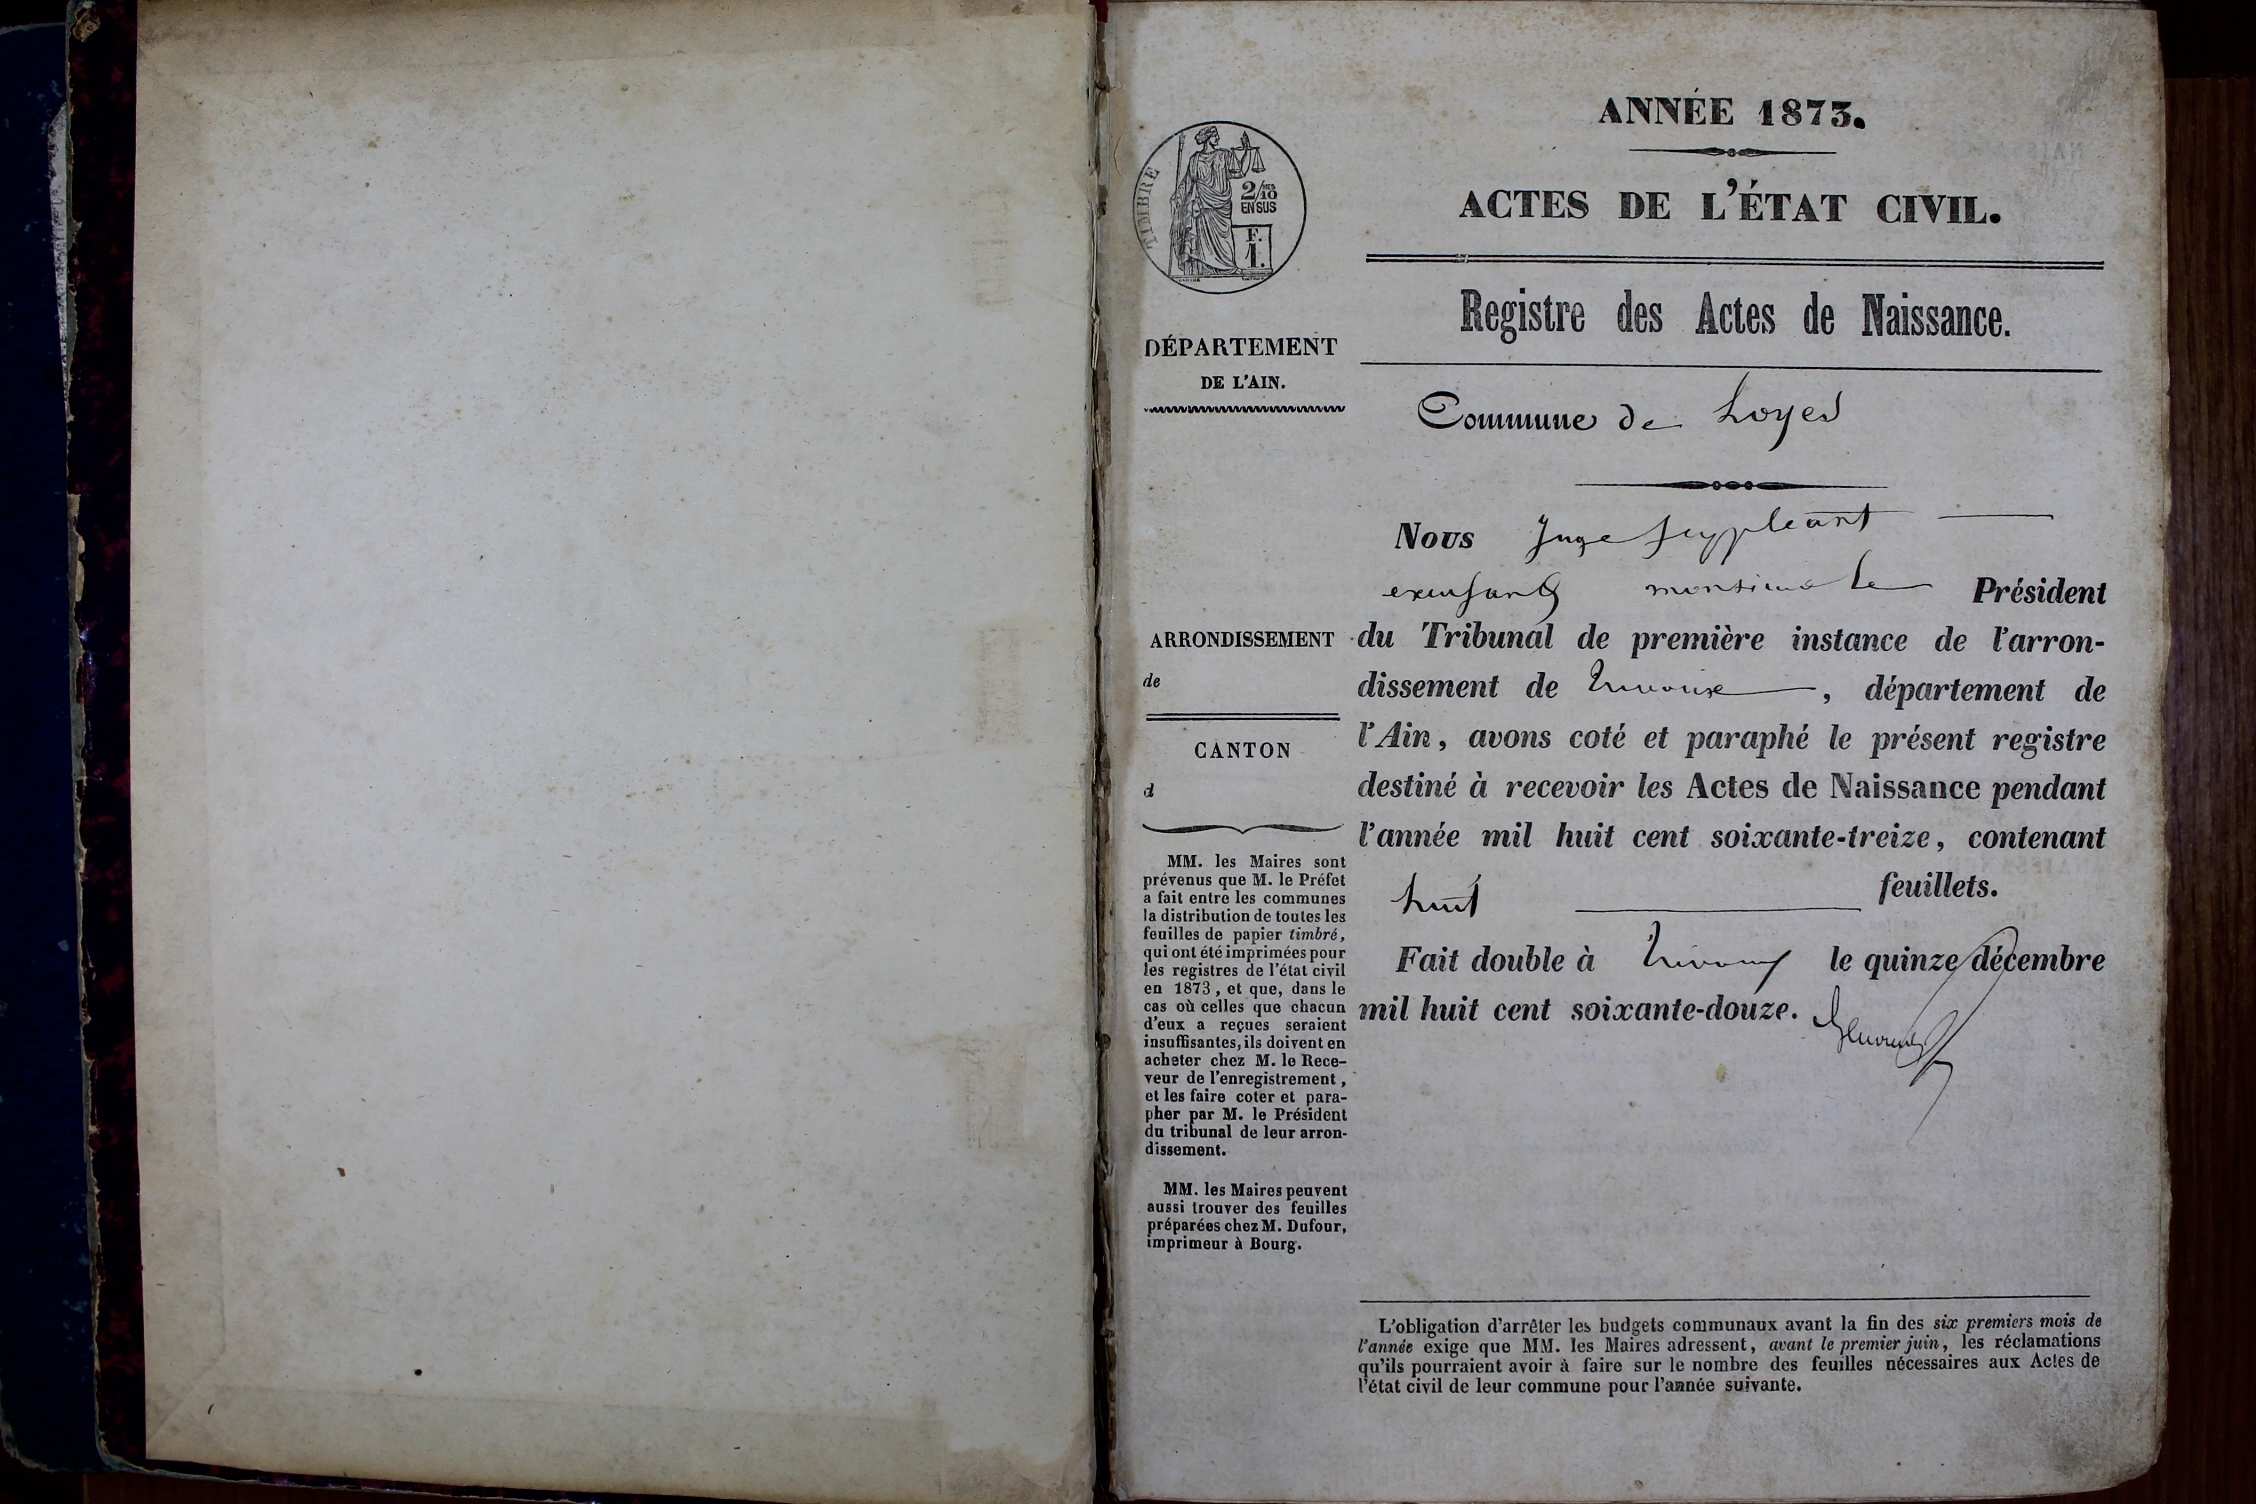 ANNÉE 1873.
ACTES DE L'ÉTAT CIVIL.
Registre des Actes de Naissance.
TIMBRE
2/10 MES
EN SUS
F.
1.
DÉPARTEMENT
DE L'AIN.
Commune de Loyes
Nous Juge suppléant
monsieur le Président
ARRONDISSEMENT
de
du Tribunal de première instance de l'arron-
dissement de Trévoux, département de
l'Ain, avons coté et paraphé le présent registre
destiné à recevoir les Actes de Naissance pendant
l'année mil huit cent soixante-treize, contenant
huit feuillets.
Fait double à Trévoux le quinze décembre
mil huit cent soixante-douze.
CANTON
d
MM. les Maires sont
prévenus que M. le Préfet
a fait entre les communes
la distribution de toutes les
feuilles de papier timbré,
qui ont été imprimées pour
les registres de l'état civil
en 1873, et que, dans le
cas où celles que chacun
d'eux a reçues seraient
insuffisantes, ils doivent en
acheter chez M. le Rece-
veur de l'enregistrement,
et les faire coter et para-
pher par M. le Président
du tribunal de leur arron-
dissement.
MM. les Maires peuvent
aussi trouver des feuilles
préparées chez M. Dufour,
imprimeur à Bourg.
L'obligation d'arrêter les budgets communaux avant la fin des six premiers mois de
l'année exige que MM. les Maires adressent, avant le premier juin, les réclamations
qu'ils pourraient avoir à faire sur le nombre des feuilles nécessaires aux Actes de
l'état civil de leur commune pour l'année suivante.